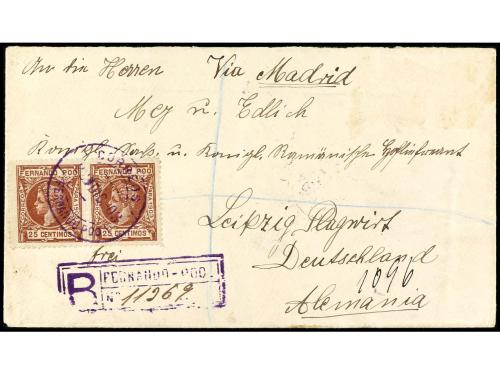 An die Herren Via Madrid
Mey u. Edlich
Königl. Sächs. u. Königl. Rumänische Hoflieferant
Leipzig Plagwirt
Deutschland
1096
Alemania
frei
FERNANDO POO
25 CENTIMOS
FERNANDO POO
25 CENTIMOS
CORREOS
FERNANDO POO
R
FERNANDO-POO
Nº 11969.